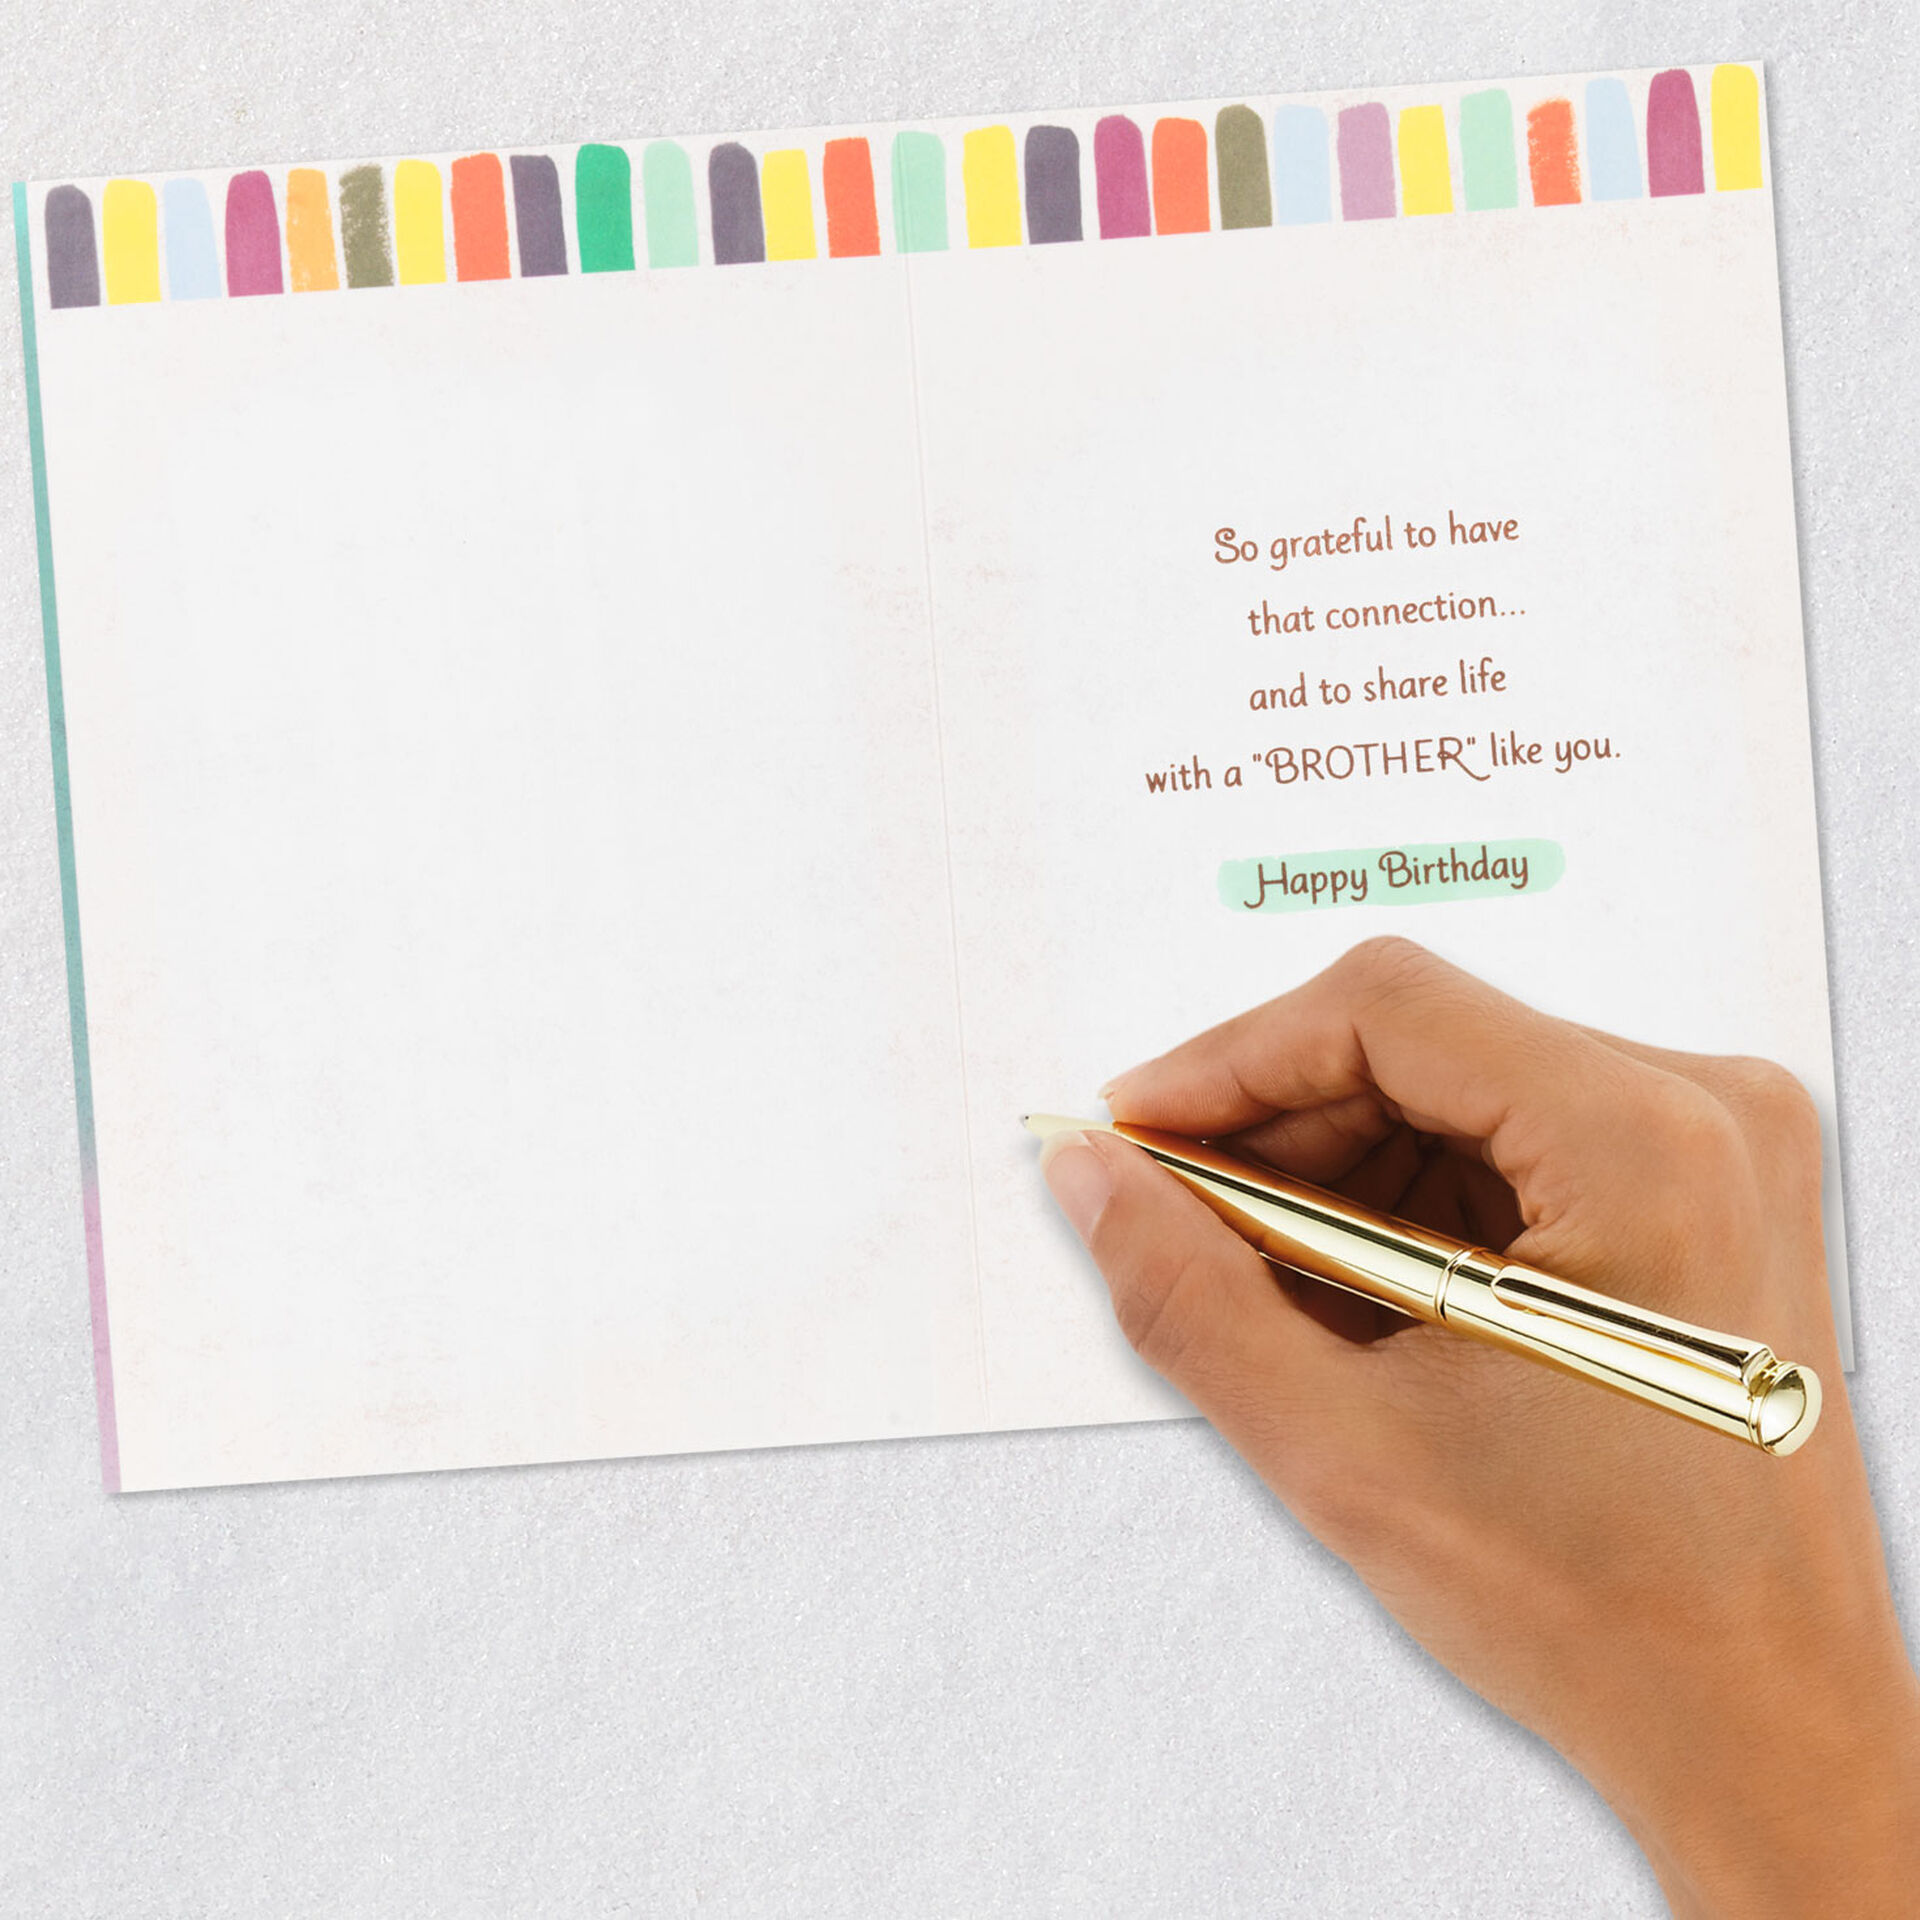 So grateful to have
that connection...
and to share life
with a "BROTHER" like you.
Happy Birthday